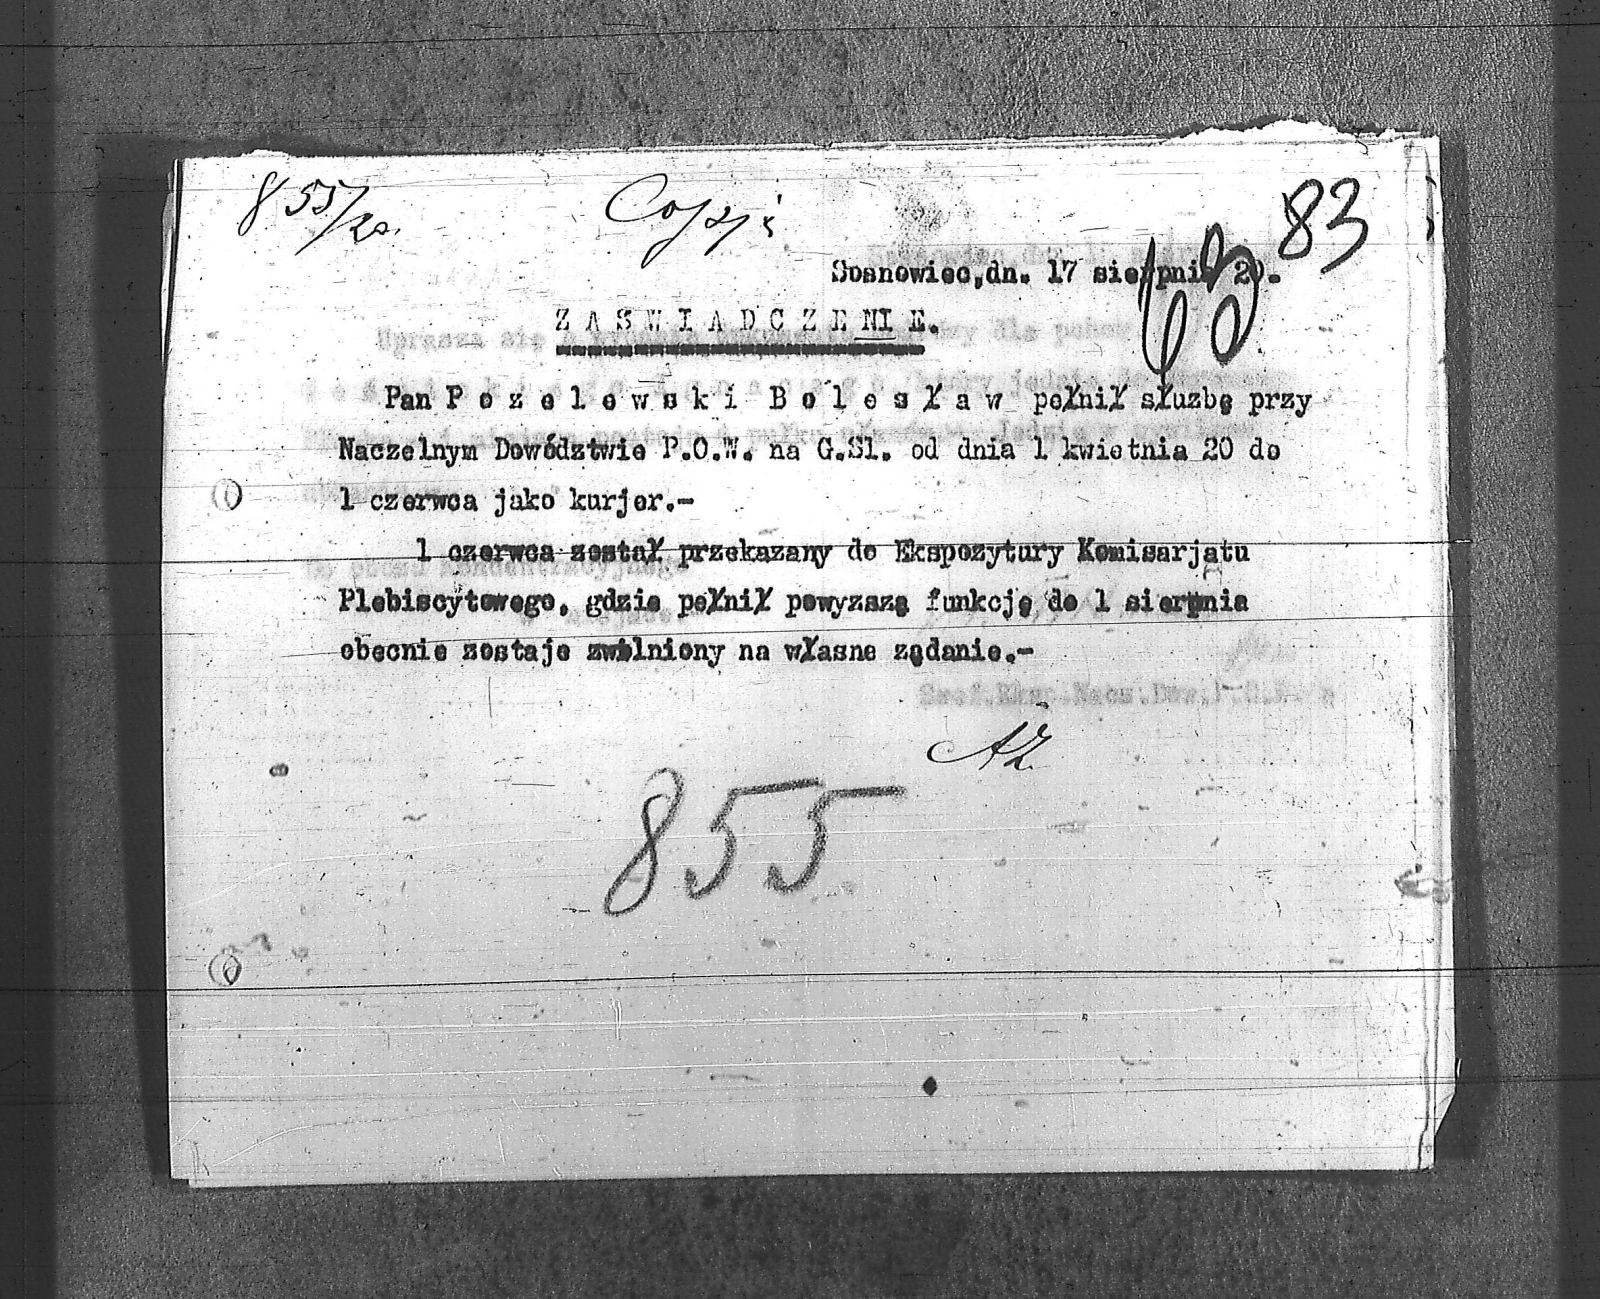 855/20.
83
63
Sosnowiec,dn. 17 sierpnia 20.
ZASWIADCZENIE.
Pan Pozelowski Bolesław pełnił słuzbę przy
Naczelnym Dowództwie P.O.W. na G.Sl. od dnia 1 kwietnia 20 do
1 czerwca jako kurjer.-
1 czerwca został przekazany do Ekspozytury Komisarjatu
Plebiscytowego, gdzie pełnił powyzszą funkcję do 1 sierpnia
obecnie zostaje zwolniony na własne ządanie.-
AZ
855